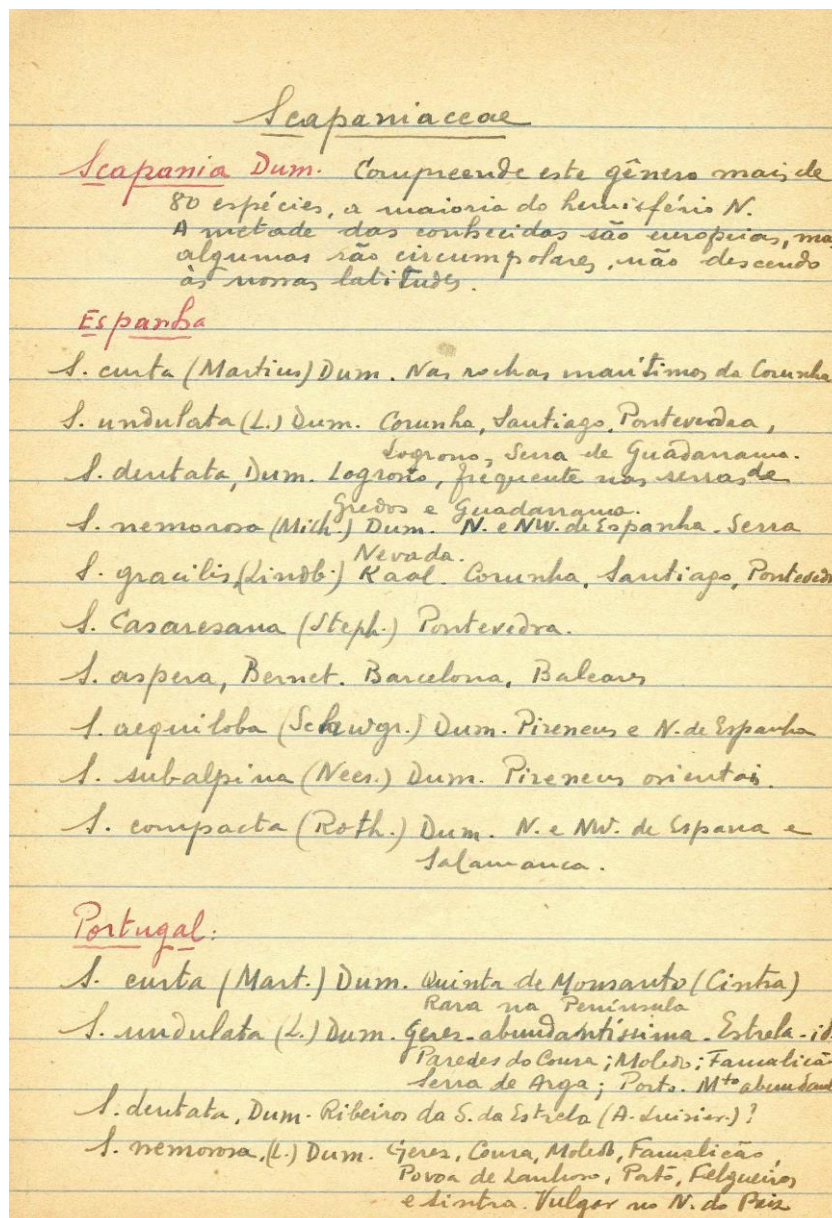 Scapaniaceae
Scapania Dum. Compreende este gênero mais de
80 espécies, a maioria do hemisfério N.
A metade das conhecidas são europeias, mas
algumas são circumpolares, não descendo
às nossas latitudes.
Espanha
S. curta (Martius) Dum. Nas rochas marítimas da Corunha
S. undulata (L.) Dum. Corunha, Santiago, Pontevedra,
Logrono, Serra de Guadarrama.
S. dentata, Dum. Logrono, frequente nas serras de
Gredos e Guadarrama.
S. nemorosa (Mich.) Dum. N. e NW. de Espanha. Serra
Nevada.
S. gracilis (Lindb.) Kaal. Corunha, Santiago, Pontevedra
S. Casaresana (Steph.) Pontevedra.
S. aspera, Bernet. Barcelona, Baleares
S. aequiloba (Schwgr.) Dum. Pireneus e N. de Espanha
S. subalpina (Nees.) Dum. Pireneus orientais.
S. compacta (Roth.) Dum. N. e NW. de Espana e
Salamanca.
Portugal:
S. curta (Mart.) Dum. Quinta de Monsanto (Cintra)
Rara na Península
S. undulata (L.) Dum. Gerez - abundantíssima - Estrela - id.
Paredes do Coura; Moledo; Famalicão
Serra de Arga; Porto. Mto abundante
S. dentata, Dum. Ribeiros da S. da Estrela (A. Luisier.)?
S. nemorosa, (L.) Dum. Gerez, Coura, Moledo, Famalicão,
Povoa de Lanhoso, Porto, Felgueiras
e Sintra. Vulgar no N. do Paiz